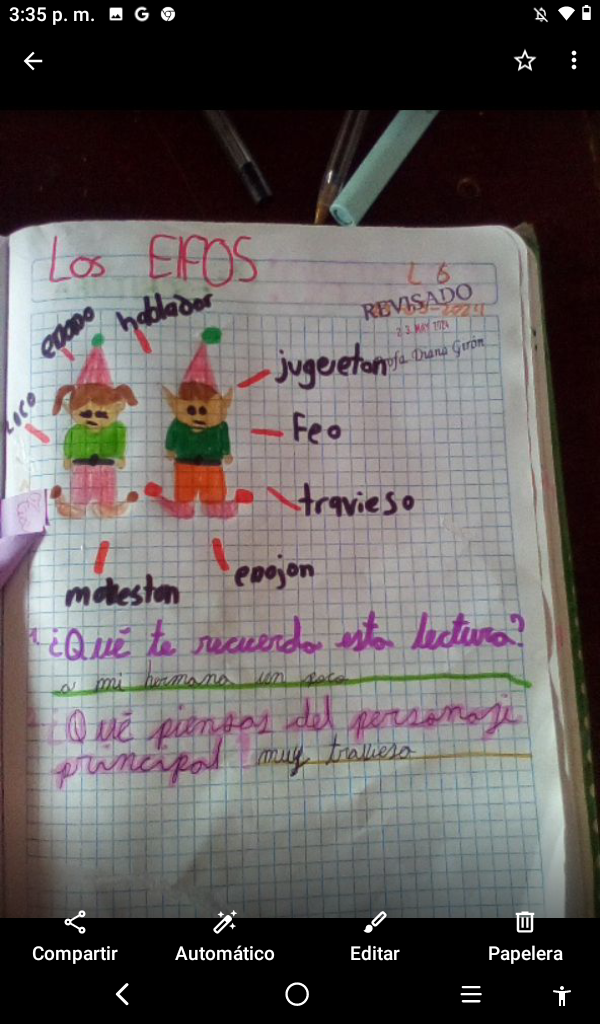 3:35 p. m.
Los ElFOS
L 6
REVISADO
23 MAY 2024
Profa Diana Girón
enano
hablador
jugueton
loco
Feo
travieso
moleston
enojon
1. ¿Qué te recuerda esta lectura?
a mi hermana un poco
¿Qué piensas del personaje
principal muy travieso
Compartir
Automático
Editar
Papelera